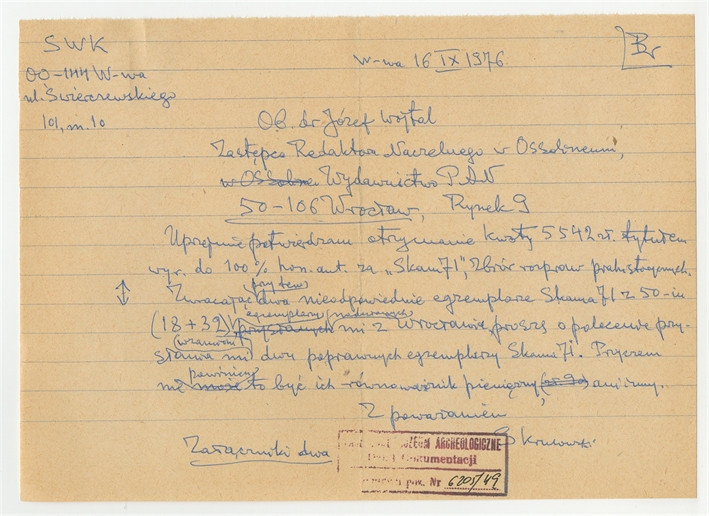 SWK
00-144 W-wa
ul. Świerczewskiego
101, m. 10
W-wa 16 IX 1976
Br
Ob. dr Józef Wojtal
Zastępca Redaktora Naczelnego w Ossolineum,
w Ossoline Wydawnictwo PAN
50-106 Wrocław, Rynek 9
Uprzejmie potwierdzam otrzymanie kwoty 5542 zł. tytułem
wyr. do 100% hon. aut. za „Skam 71", zbiór rozpraw prahistorycznych.
przytem
Zwracając dwa nieodpowiednie egzemplarze Skama 71 z 50-iu
egzemplarzy nadesłanych
(18+32) przysłanych mi z Wrocławia proszę o polecenie przy-
wzamian
słania mi dwu poprawnych egzemplarzy Skama 71. Przyczem
powinien
nie może to być ich równoważnik pieniężny ani inny.
Z poważaniem
S Krukowski
Załączniki dwa
MUZEUM ARCHEOLOGICZNE
Dział Dokumentacji
poz. Nr 6205/49